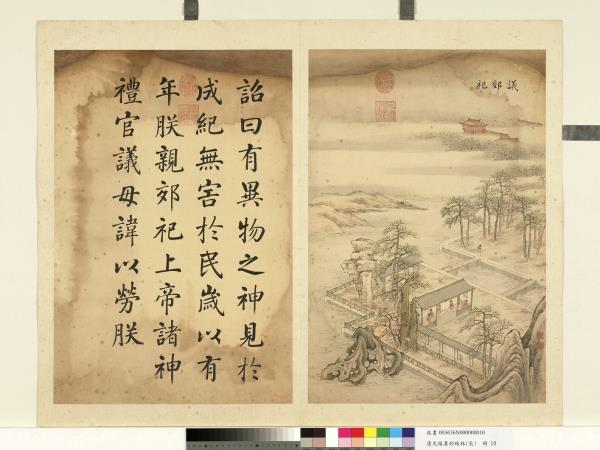 議郊祀
詔曰有異物之神見於
成紀無害於民歲以有
年朕親郊祀上帝諸神
禮官議毋諱以勞朕
故畫 003636N000000010
清允禧墨妙珠林(辰) 冊 10